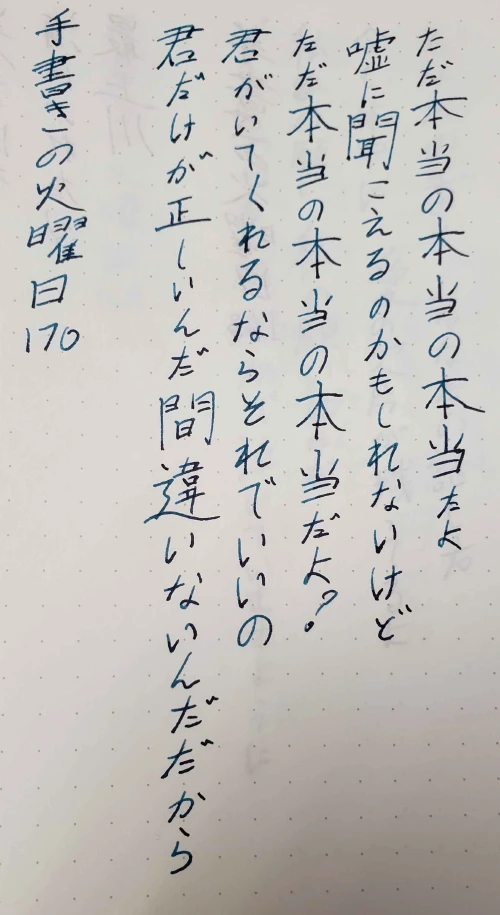 ただ本当の本当の本当だよ
嘘に聞こえるのかもしれないけど
ただ本当の本当の本当だよ?
君がいてくれるならそれでいいの
君だけが正しいんだ間違いないんだだから
手書きの火曜日170